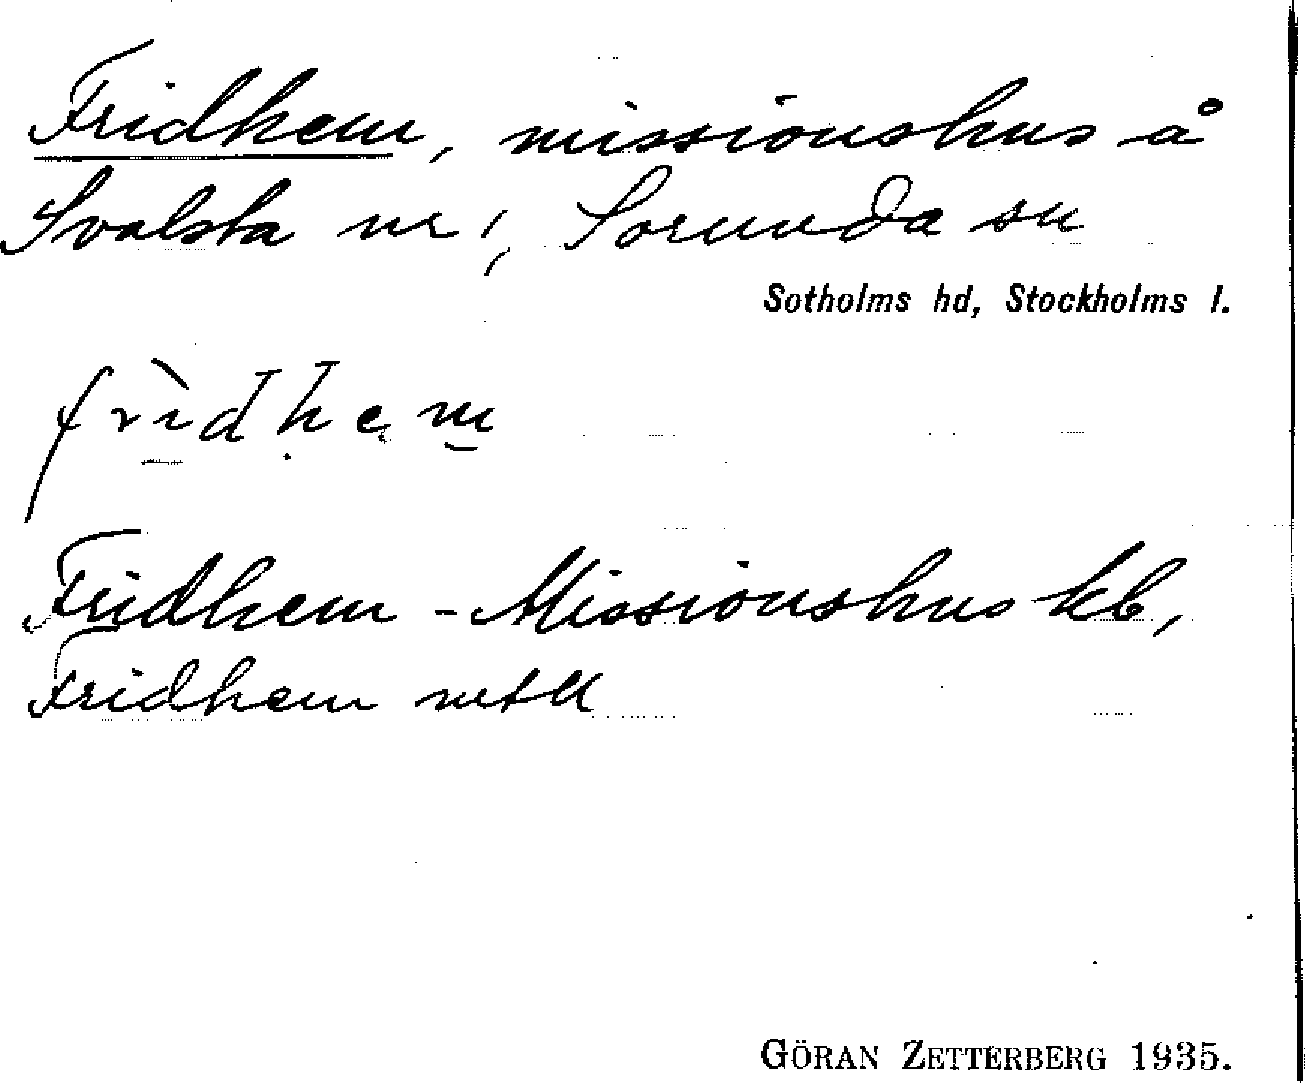 Fridhem, missionshus å
Svalsta nr 1, Sorunda sn
Sotholms hd, Stockholms l.
frìdhem
Fridhem - Missionshus kb,
Fridhem
GÖRAN ZETTERBERG 1935.